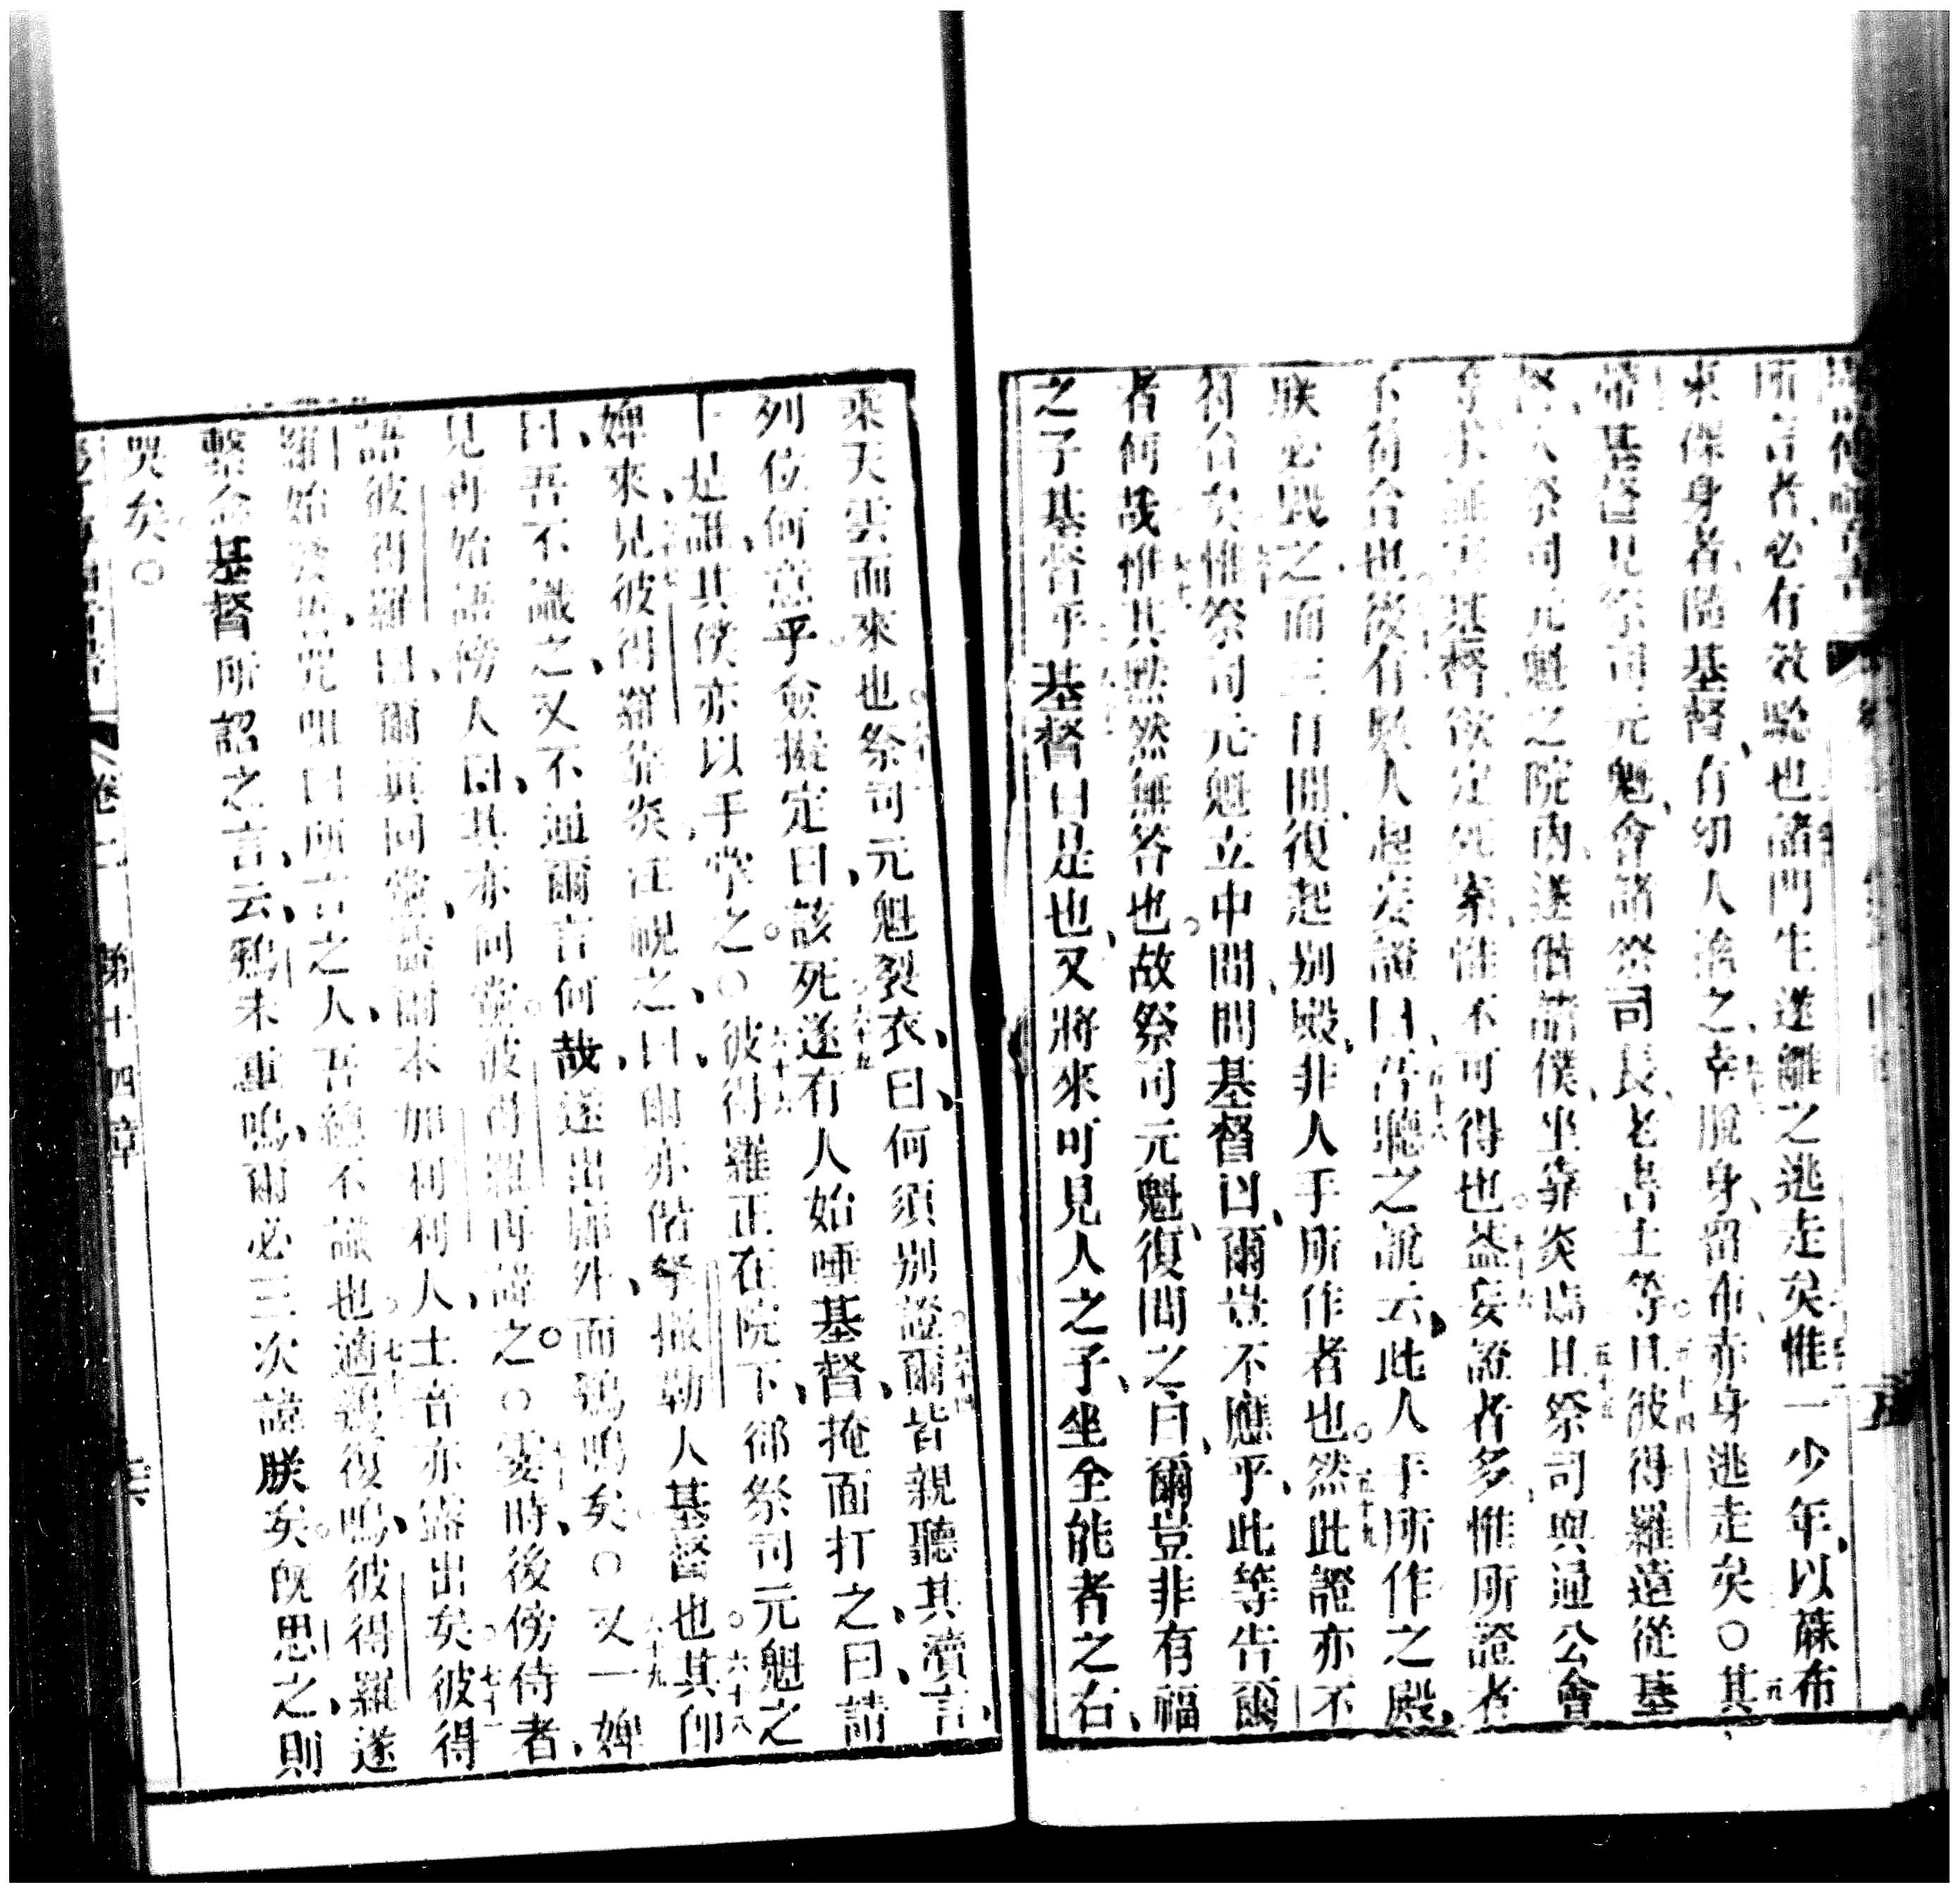 所言者必有效騐也諸門生遂離之逃走矣惟一少年以蔴布
來保身者隨基督有幼人拴之幸脫身留布赤身逃走矣〇其
帶基督見祭司元魁會諸祭司長老書士等且彼得羅遠從基
入祭司元魁之院內遂偕諸僕坐靠炎焉且祭司與通公會
等求証害基督欲定死案惟不可得也葢妄證者多惟所證者
不符合也後有與人起妄證曰吾聽之說云此人手所作之殿
朕必毀之而三日間復起別殿非人手所作者也然此證亦不
符合矣惟祭司元魁立中間問基督曰爾豈不應乎此等告爾
者何哉惟其黙然無答也故祭司元魁復問之曰爾豈非有福
之子基督乎基督曰是也又將來可見人之子坐全能者之右
來天雲而來也祭司元魁裂衣曰何須別證爾皆親聽其瀆言
列位何意乎僉擬定曰該死遂有人始唾基督掩面打之曰請
卜是誰其僕亦以手掌之〇彼得羅正在院下卻祭司元魁之
婢來見彼得羅靠炎汪視之曰爾亦偕拏撒勒人基督也其卽
曰吾不識之又不通爾言何哉遂出廊外而鷄鳴矣〇又一婢
見再始語傍人曰其亦同黨彼得羅再諱之〇霎時後傍侍者
語彼得羅曰爾真同黨葢爾本加利利人士音亦露出矣彼得
羅始發誓咒咀曰所言之人吾總不識也適鷄復鳴彼得羅遂
繫念基督所詔之言云鷄未重鳴爾必三次諱朕矣旣思之則
哭矣〇
卷二 第十四章